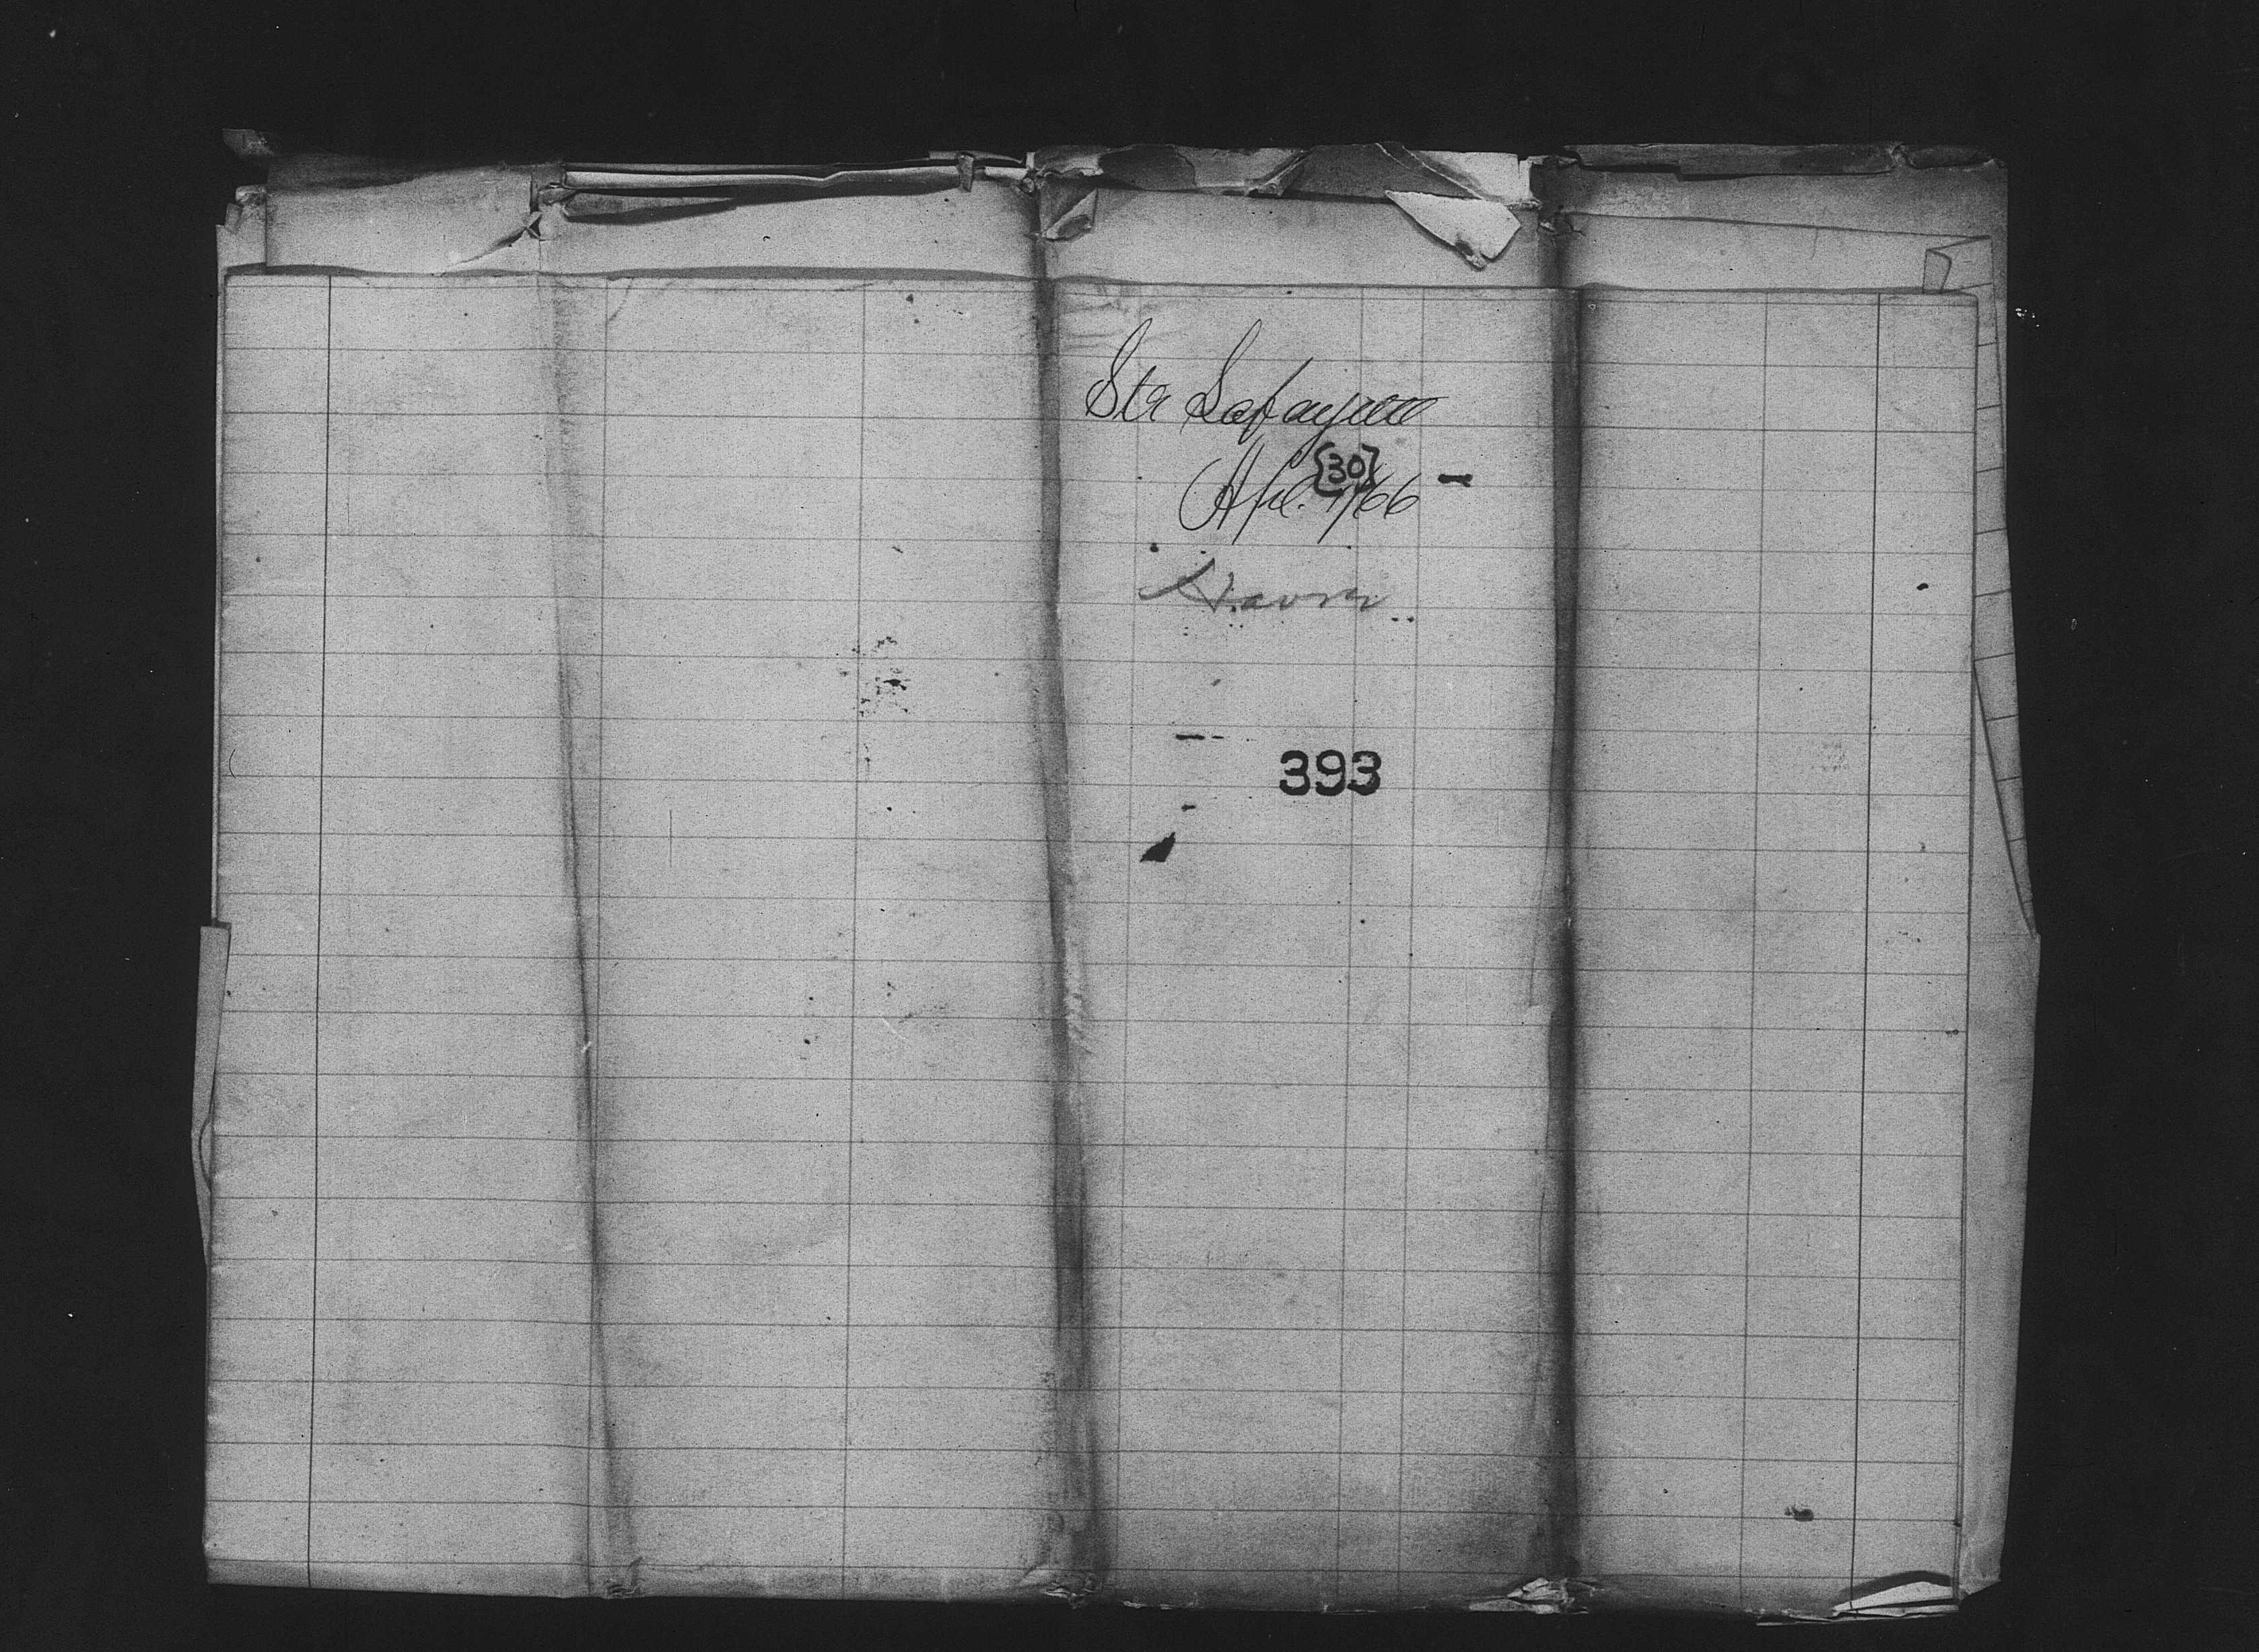 Str Lafayette
[30]
Apl. /66
Havre
393